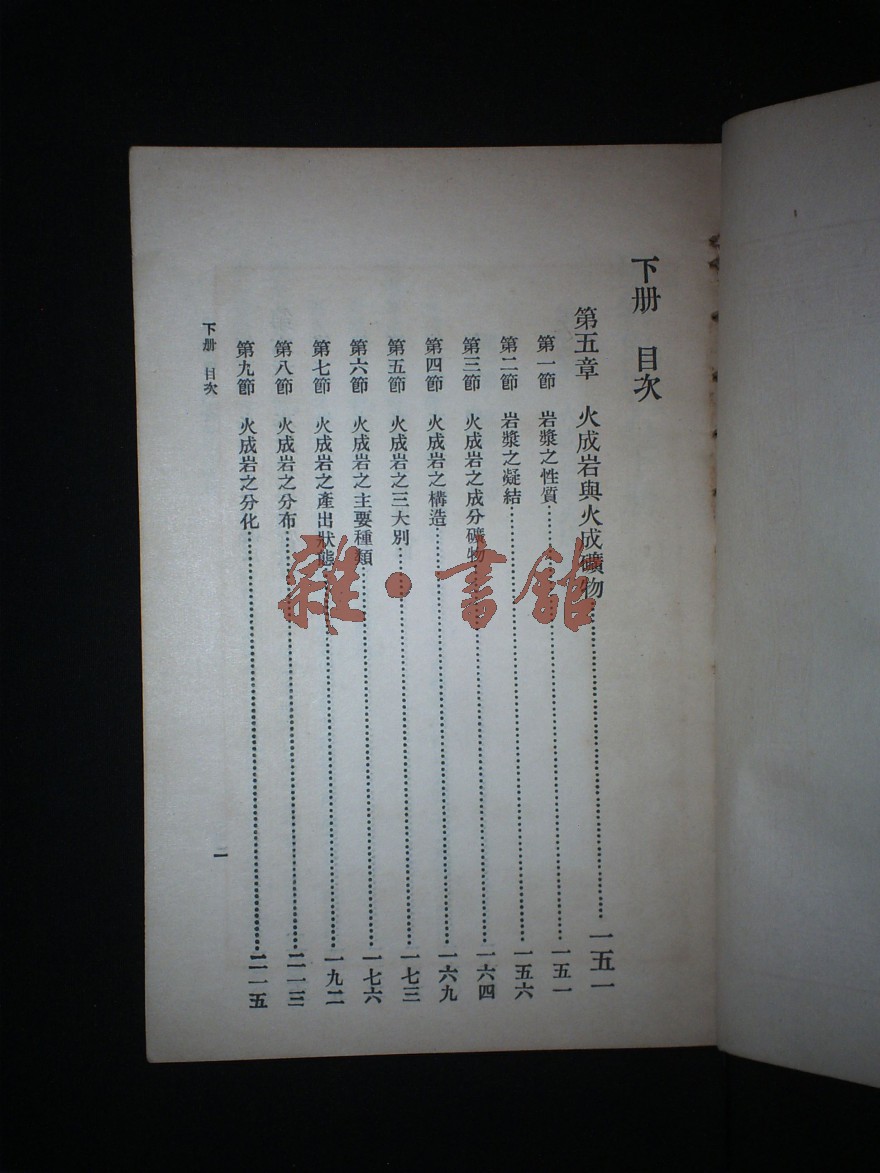 下册　目次
第五章　火成岩與火成礦物……一五一
第一節　岩漿之性質……一五一
第二節　岩漿之凝結……一五六
第三節　火成岩之成分礦物……一六四
第四節　火成岩之構造……一六九
第五節　火成岩之三大別……一七三
第六節　火成岩之主要種類……一七六
第七節　火成岩之產出狀態……一九二
第八節　火成岩之分布……二一三
第九節　火成岩之分化……二一五
下册　目次
一
雜·書館